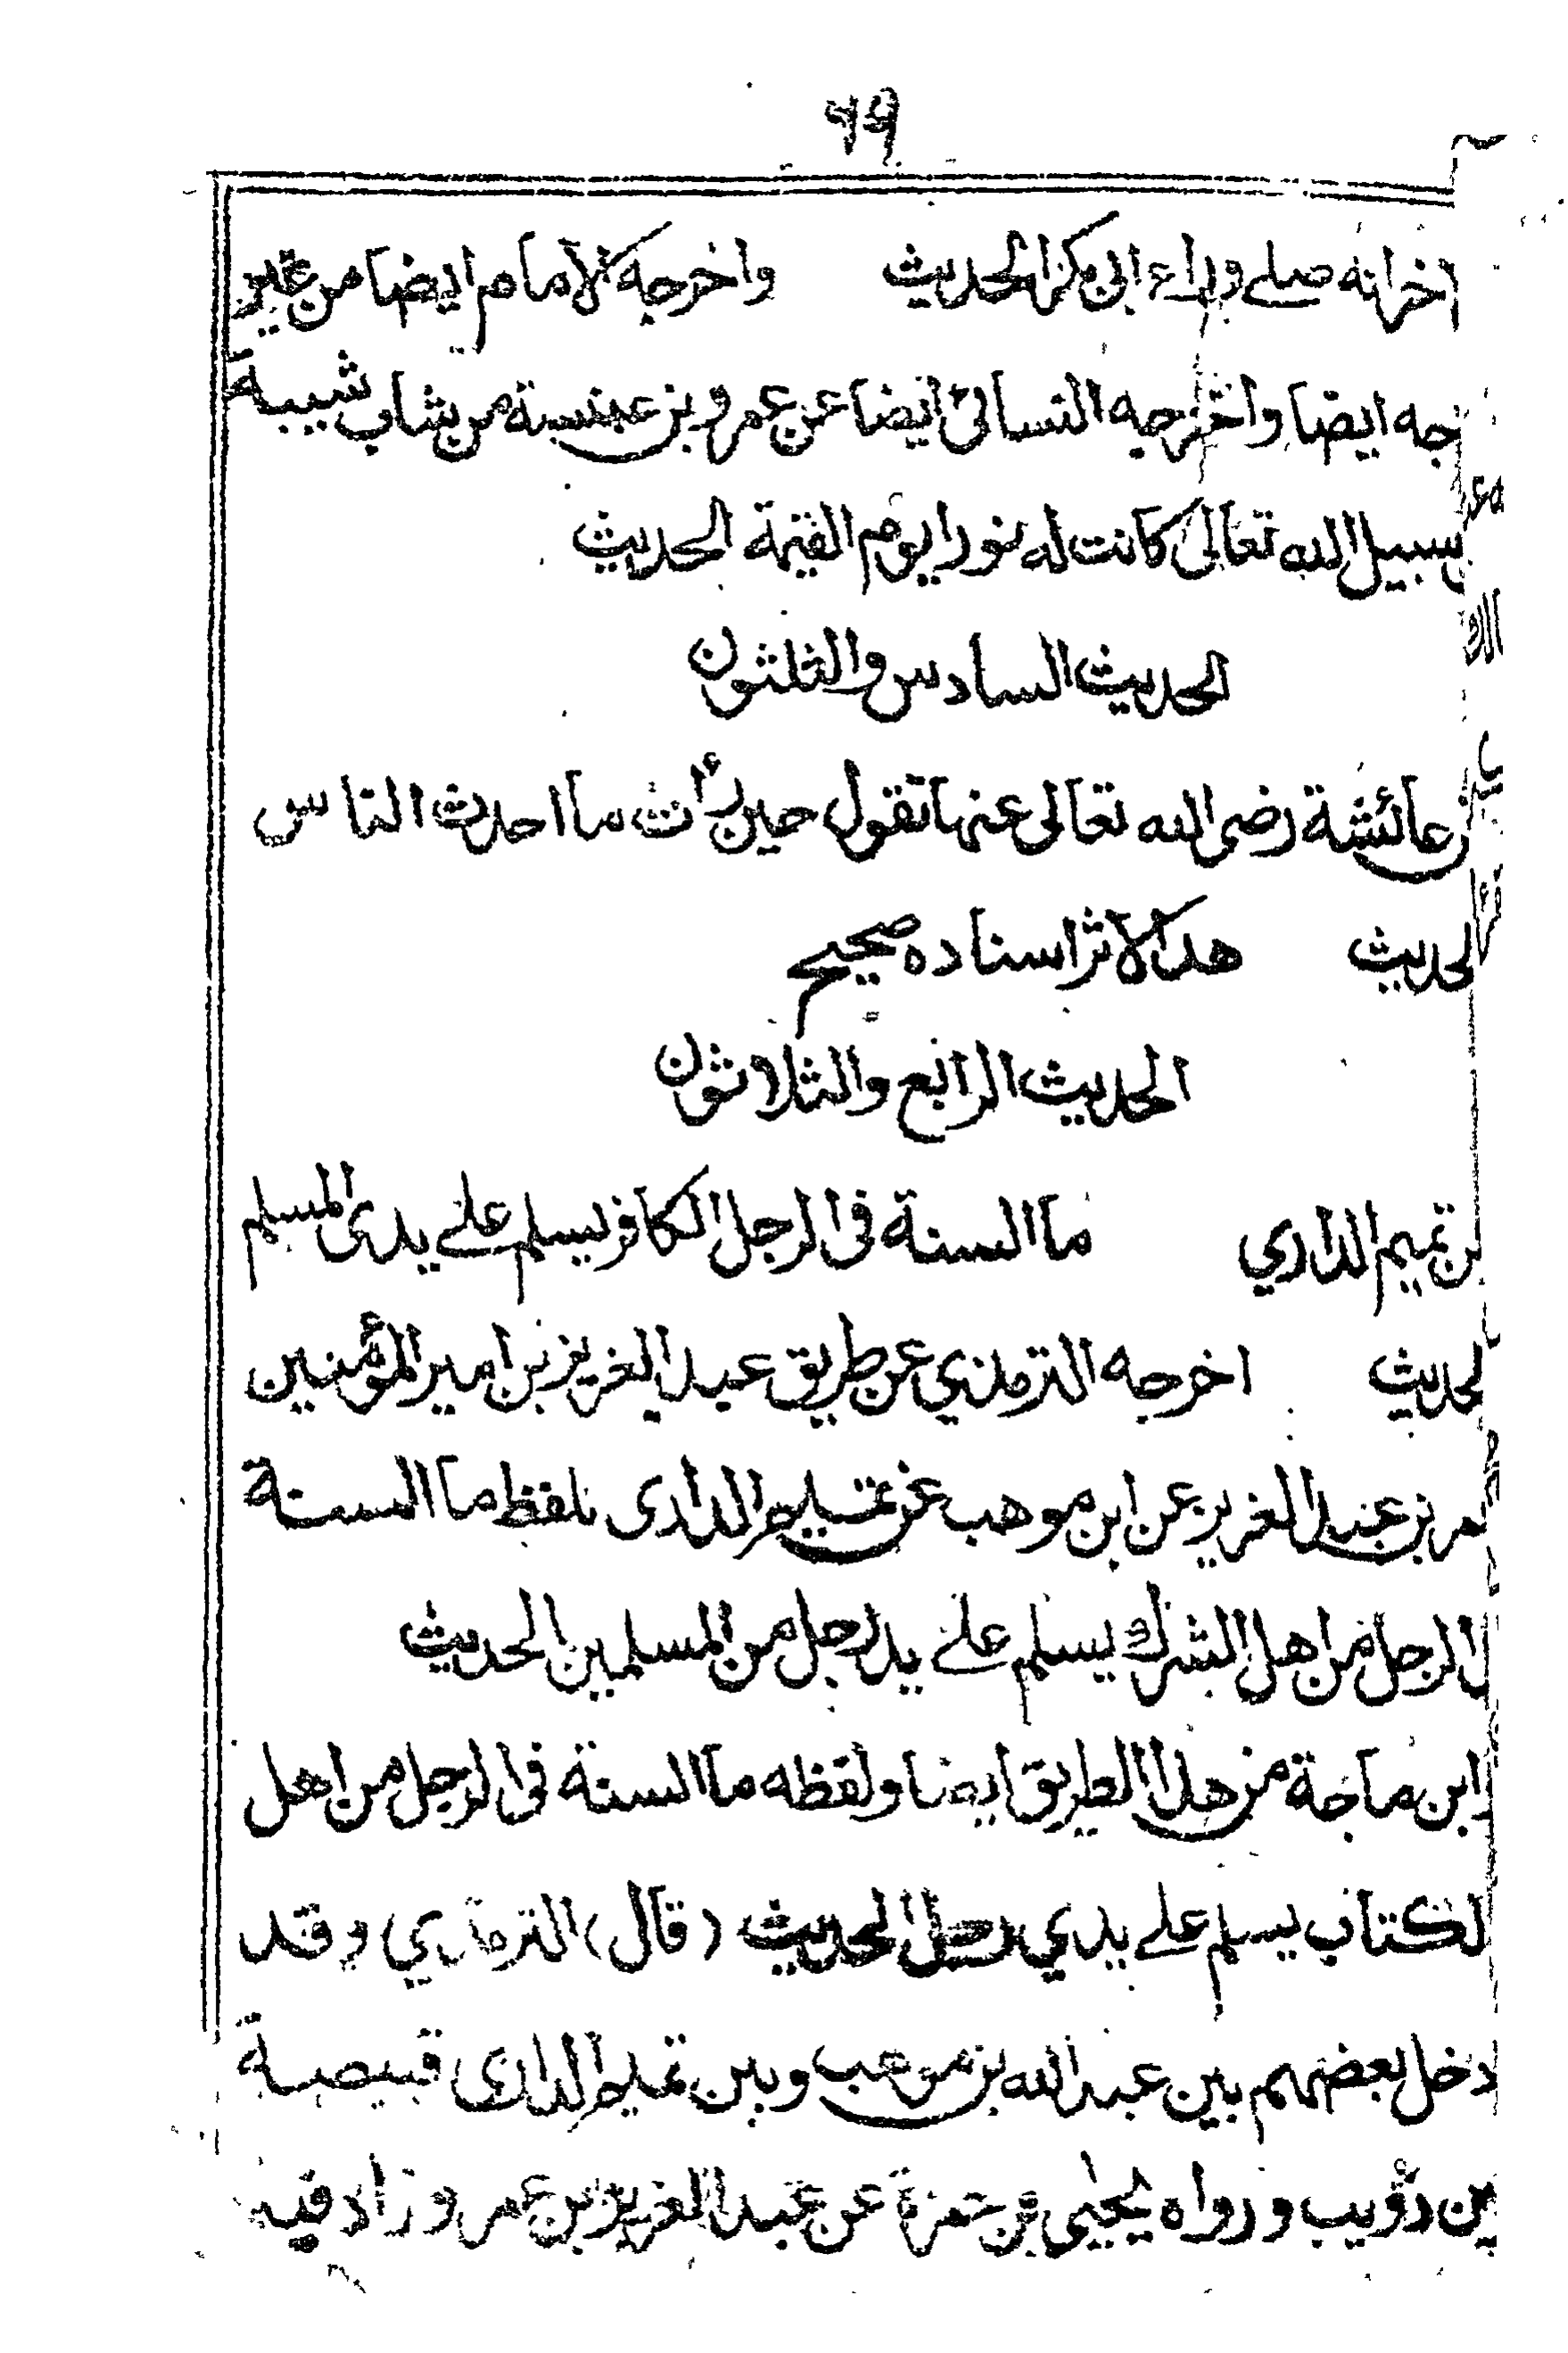 ٦٩
اخرانه صلے وراء ابی بکرالحدیث واخرجه الامام ایضا من غیر
جه ایضا واخرجه النسائی ایضا عن عمرو بن عبسة من شاب شیبة
سبیل الله تعالی کانت له نورا یوم القیٰمة الحدیث
الحدیث السادس والثلثون
عائشة رضی الله تعالی عنها تقول حین رأت ما احدث الناس
لحدیث هذا الاثر اسناده صحیح
الحدیث الرابع والثلاثون
تمیم الداري ما السنة فی الرجل الکافر یسلم علے یدی المسلم
لحدیث اخرجه الترمذي عن طریق عبد العزیز بن امیر المؤمنین
مر بن عبد العزیز عن ابن موهب عن تمیم الداری بلفظ ما السنة
الرجل من اهل الشرك یسلم علے ید رجل من المسلمین الحدیث
ابن ماجة من هذا الطریق ایضا ولفظه ما السنة فی الرجل من اهل
لکتاب یسلم علے یدي رجل الحدیث (قال) الترمذي وقد
دخل بعضهم بین عبد الله بن موهب وبین تمیم الداری قبیصة
بن ذؤیب ورواه یحیی بن حمزة عن عبد العزیز بن عمر وزاد فیه